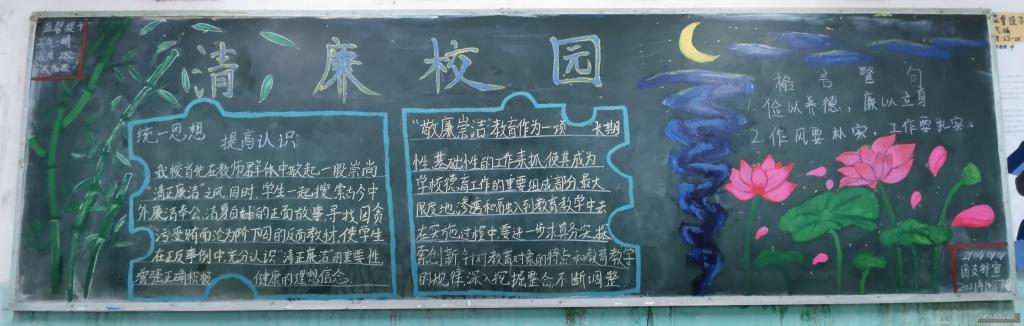 温馨提示
清廉校园
统一思想 提高认识
我校首先在教师群体中掀起一股崇尚
"清正廉洁"之风,同时,学生一起搜索古今中
外廉洁奉公、洁身自好的正面故事,寻找因贪
污受贿而沦为阶下囚的反面教材,使学生
在正反事例中充分认识清正廉洁的重要性,
增强正确积极 健康的理想信念。
"敬廉崇洁"教育作为一项 长期
性、基础性的工作来抓,使其成为
学校德清工作的重要组成部分,最大
限度地渗透和融入到教育教学中去
在实施过程中要进一步求真务实探
索创新,针对教育对象的特点和教育教学
的规律,深入挖掘整合不断调整
格言警句
1.俭以养德,廉以立身
2.作风要朴实,工作要扎实.
团支部宣